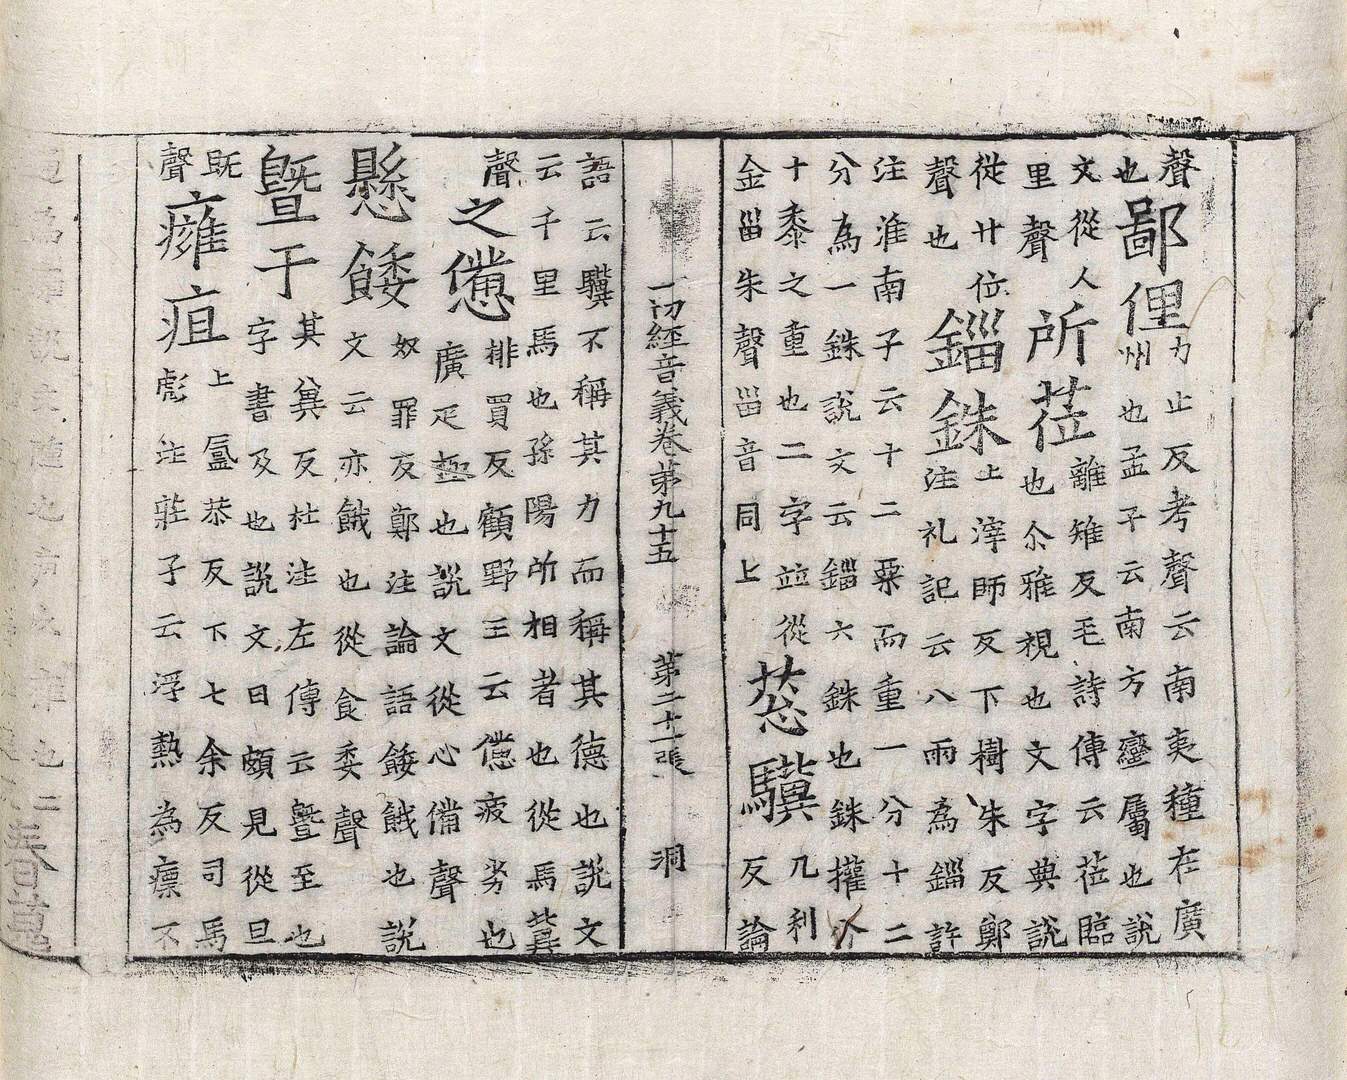 聲也鄙俚力止反考聲云南夷種在廣州也孟子云南方蠻屬也說
文從人里聲所莅離雉反毛詩傳云莅臨也尒雅視也文字典說
從廾位聲也錙銖上滓師反下樹朱反鄭注礼記云八兩為錙許
注淮南子云十二粟而重一分十二分為一銖說文云錙六銖也銖擢分
十黍之重也二字並從金甾朱聲甾音同上驥几利反論
一切經音義卷第九十五 第二十一張 洞
語云驥不稱其力而稱其德也說文云千里馬也孫陽所相者也從馬冀
聲之憊排買反顧野王云憊疲劣也廣疋極也說文從心備聲
懸餧奴罪反鄭注論語餧餓也說文云亦餓也從食委聲
曁于其兾反杜注左傳云曁至也字書及也說文日頗見從旦
旣聲癰疽上恭反下七余反司馬彪注莊子云浮熱為瘭不